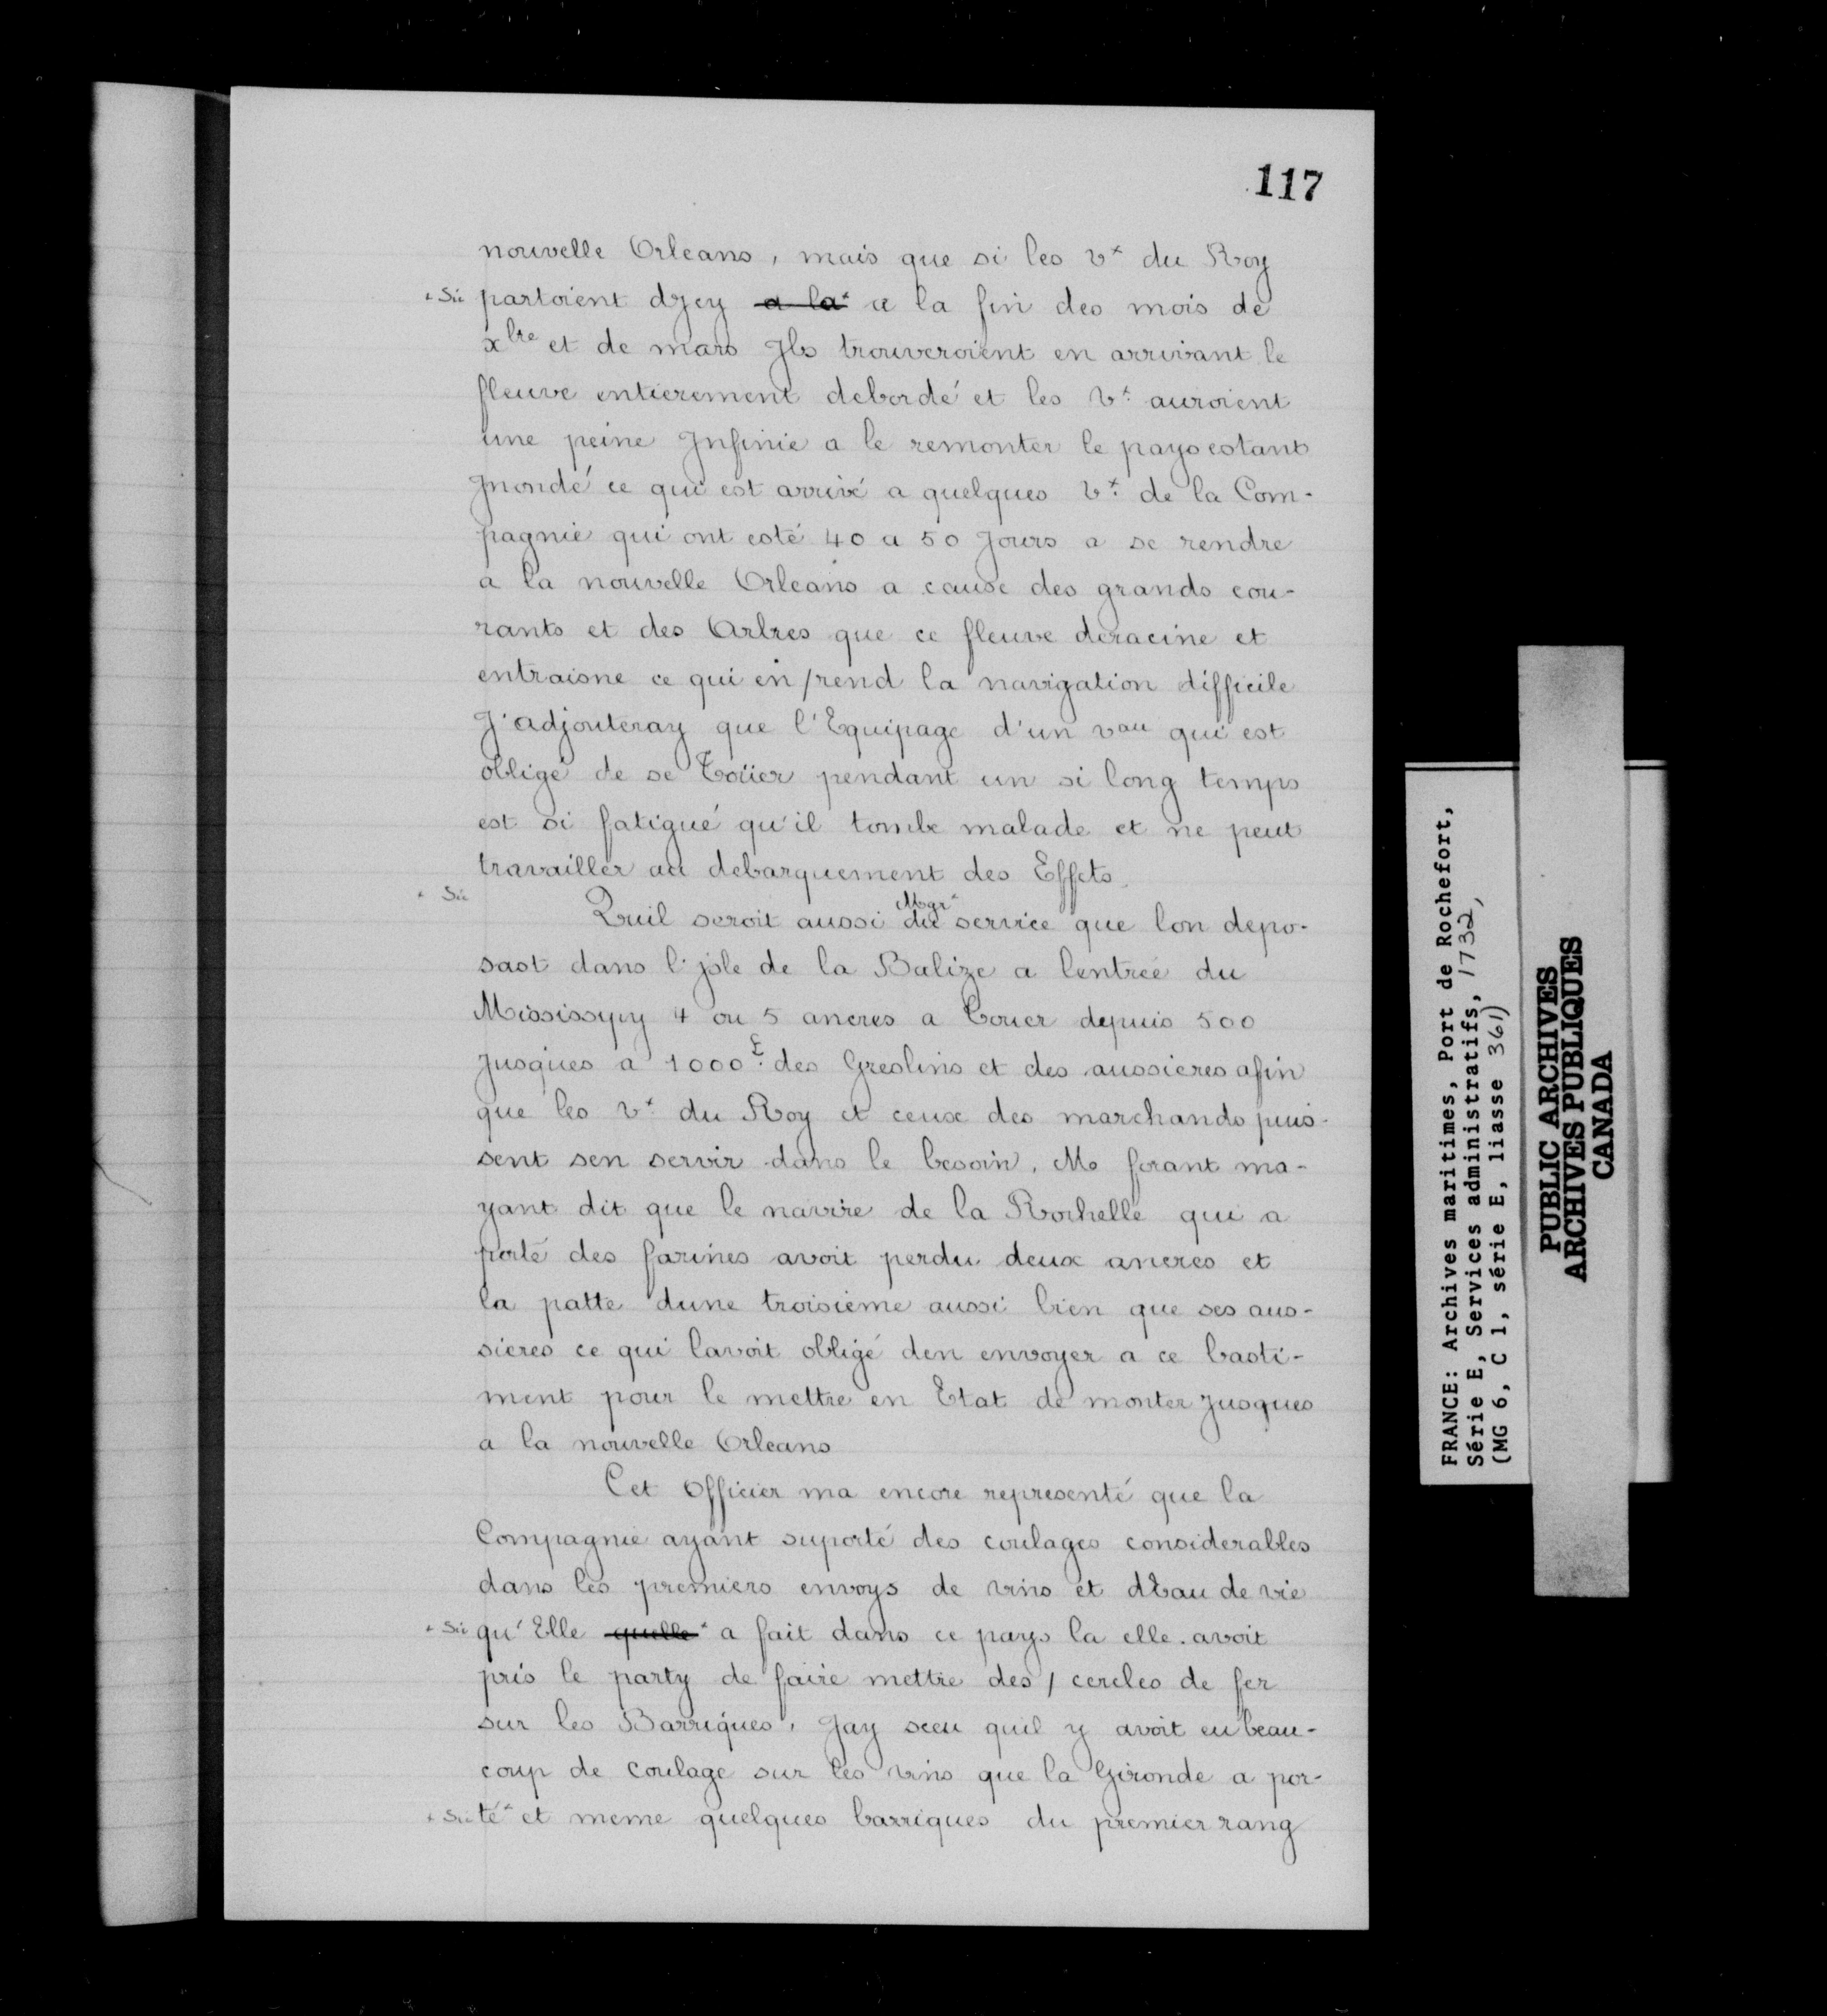 117
nouvelle Orleans, mais que si les vx du Roy
+ Sic partoient dJcy a la x a la fin des mois de
xbre et de mars Jls trouveroient en arrivant le
fleuve entierement debordé et les vx auroient
une peine Jnfinie a le remonter le pays estant
Jnondé ce qui est arrivé a quelques vx de la Com-
pagnie qui ont esté 40 a 50 Jours a se rendre
a la nouvelle Orleans a cause des grands cou-
rants et des Arbres que ce fleuve deracine et
entraisne ce qui en/rend la navigation difficile
J'adjouteray que l'Equipage d'un vau qui est
obligé de se Toüer pendant un si long temps
est si fatigué qu'il tombe malade et ne peut
travailler au debarquement des Effets.
+ Sic
Mgr x
Quil seroit aussi du service que lon depo-
sast dans l'jsle de la Balize a lentrée du
Missisypy 4 ou 5 ancres a Touer depuis 500
Jusques a 1000 £ des Greslins et des aussieres afin
que les vx du Roy et ceux des marchands puis-
sent sen servir dans le besoin. Mo forant ma-
yant dit que le navire de la Rochelle qui a
porté des farines avoit perdu deux ancres et
la patte dune troisième aussi bien que ses aus-
sieres ce qui lavoit obligé den envoyer a ce basti-
ment pour le mettre en Etat de monter Jusques
a la nouvelle Orleans
Cet Officier ma encore representé que la
Compagnie ayant suporté des coulages considerables
dans les premiers envoys de vins et dEau de vie
+ Sic qu'Elle quelle x a fait dans ce pays la elle avoit
pris le party de faire mettre des / cercles de fer
sur les Barriques, Jay sceu quil y avoit eu beau-
coup de Coulage sur les vins que la Gironde a por-
+ Sic té x et meme quelques barriques du premier rang
FRANCE: Archives maritimes, Port de Rochefort,
Série E, Services administratifs, 1732,
(MG 6, C 1, série E, liasse 361)
PUBLIC ARCHIVES
ARCHIVES PUBLIQUES
CANADA